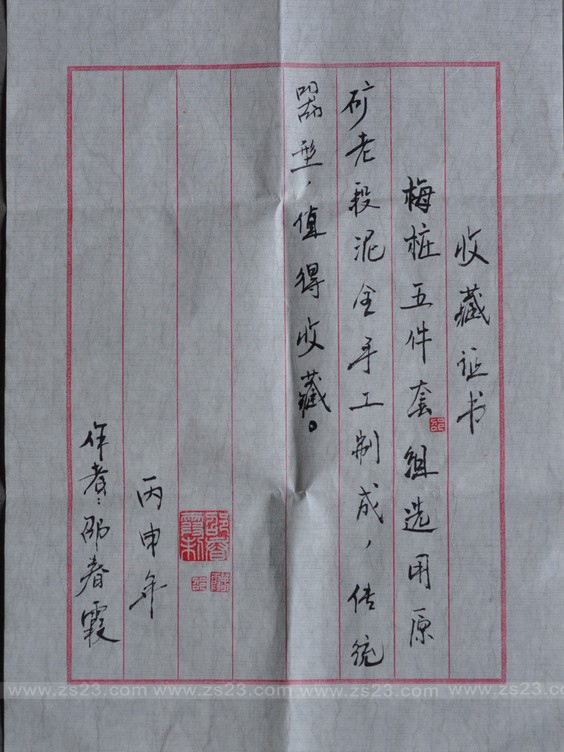 收藏证书
梅桩五件套组选用原
矿老段泥全手工制成，传统
器型，值得收藏。
丙申年
作者：邵春霞
www.zs23.com www.zs23.com www.zs23.com www.zs23.com